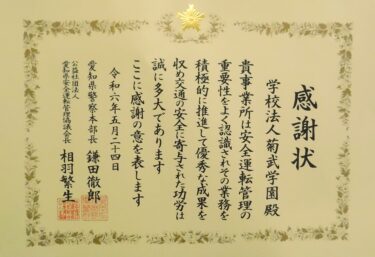 感謝状
学校法人菊武学園 殿
貴事業所は安全運転管理の
重要性をよく認識されその業務を
積極的に推進して優秀な成果を
収め交通の安全に寄与された功労は
誠に多大であります
ここに感謝の意を表します
令和六年五月二十四日
愛知県警察本部長 鎌田徹郎
公益社団法人
愛知県安全運転管理協議会会長 相羽繁生